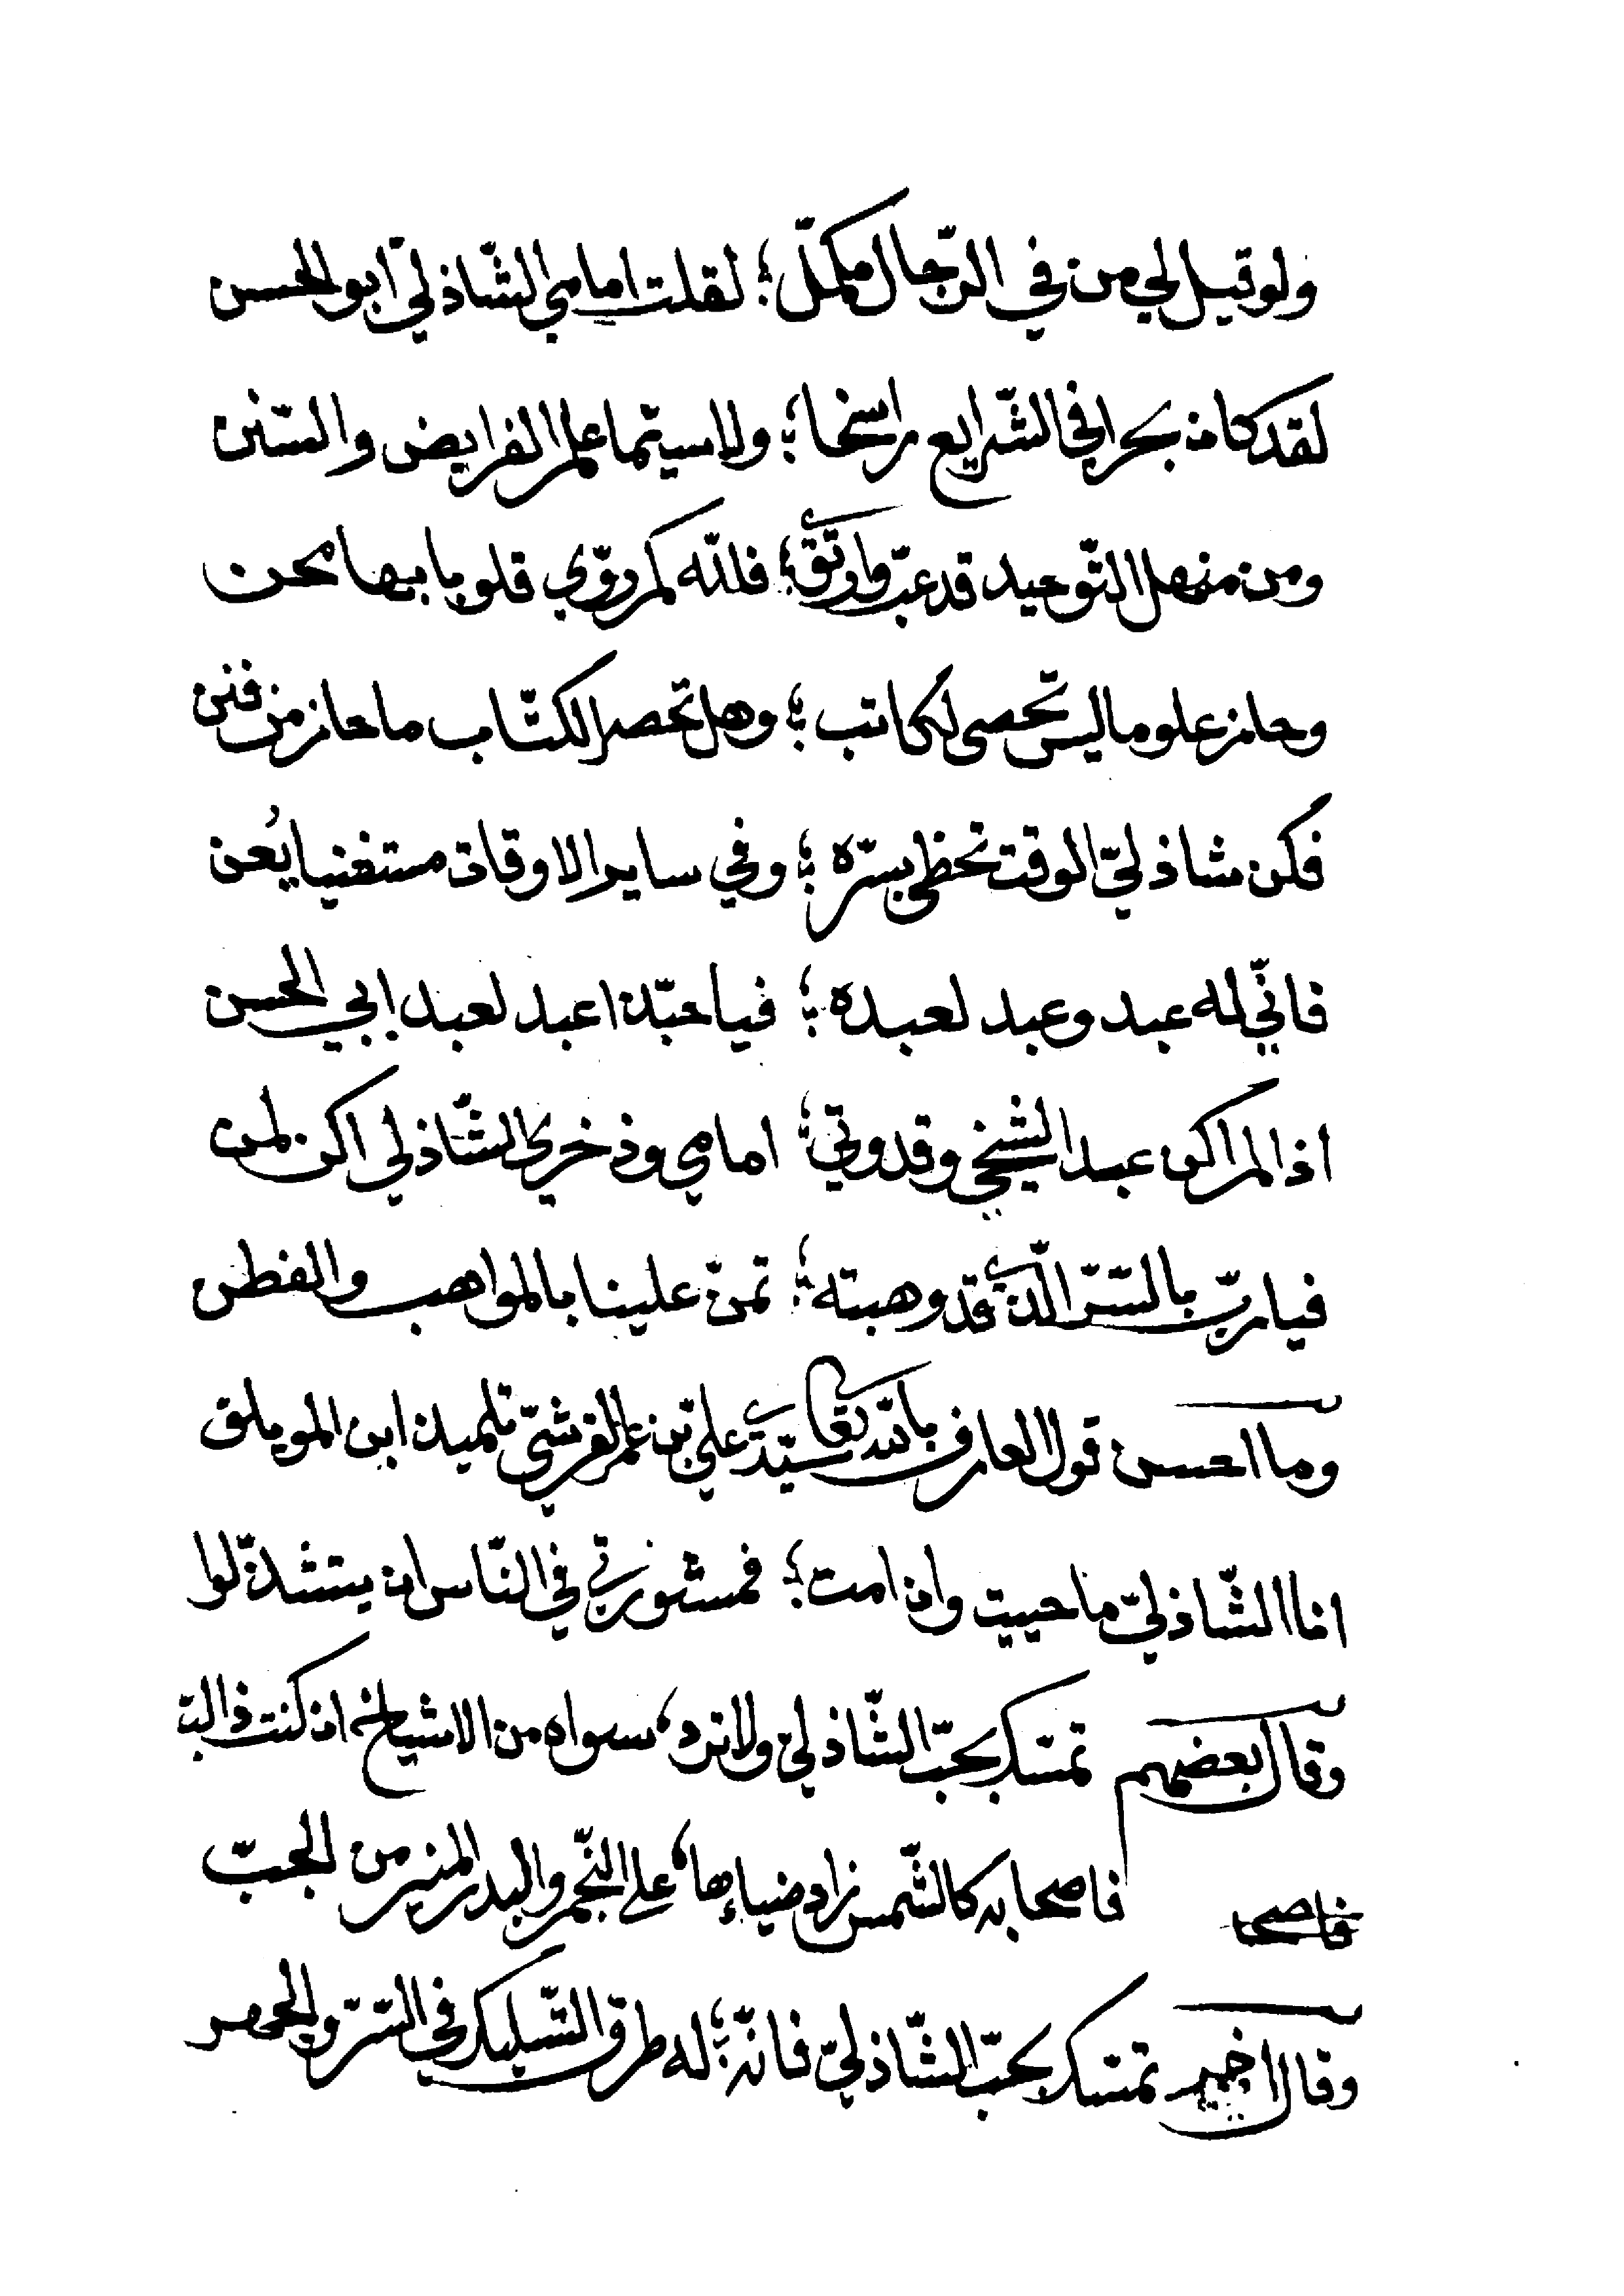 ولو قيل لي من في الرّجال مكمّل ؛ لقلت امامي الشّاذليّ ابو الحسن
لقد كان بحرا في الشّرايع راسخا ؛ ولا سيّما علم الفرايض والسّنن
ومن منهل التّوحيد قد عبّ وارتوى ؛ فللّه كم روّى قلوبا بها محن
وحاز علوما ليس تحصى لكاتب ؛ وهل تحصر الكتّاب ما حاز من فنن
فكن شاذليّ الوقت تحظى بسرّه ؛ وفي ساير الاوقات مستغنيا يُعن
فانّي له عبد وعبد لعبده ؛ فيا حبّذا عبد لعبد ابي الحسن
اذا لم اكن عبدا لشيخي وقدوتي ؛ امامي وذخري الشّاذلي اكن لمن
فيا ربّ بالسّرّ الّذي قد وهبته ؛ تمنّ علينا بالمواهب والفطن
وما احسن قول العارف بالله تعالى سيّدي علي بن عمر القرشيّ تلميذ ابن المويلق
انا الشّاذليّ ما حييت وان امت ؛ فمشورتي في النّاس ان يتشذّلوا
وقال بعضهم تمسّك بحبّ الشّاذليّ ولا ترد ، سواه من الاشياخ ان كنت ذا لبّ
فاصحابه كالشّمس زاد ضياءها ، على النّجم والبدر المنير من الحجبّ
وقال اخر تمسّك بحبّ الشّاذليّ فانّه ؛ له طرق التّسليك في السّرّ والجهر